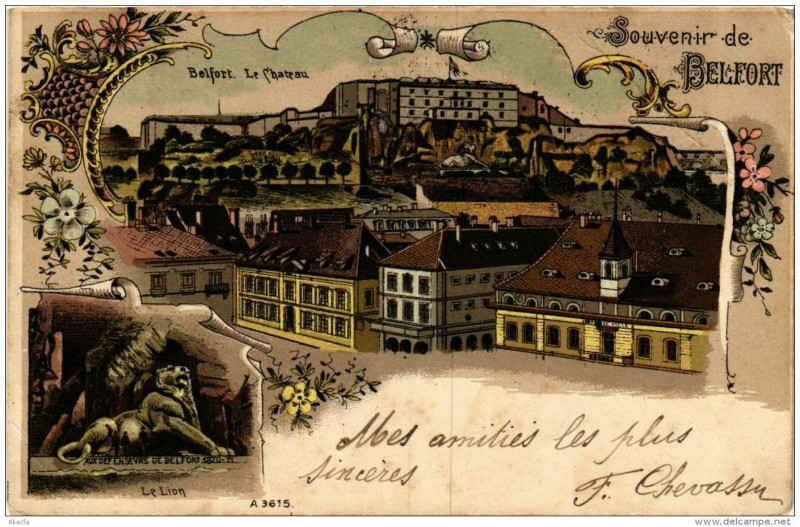 Souvenir de
BELFORT
Belfort. Le Chateau
Mes amitiés les plus
sincères
F. Chevassu
AUX DEFENSEURS DE BELFORT 1870-71
Le Lion
A 3615.
Akacfa
www.delcampe.net